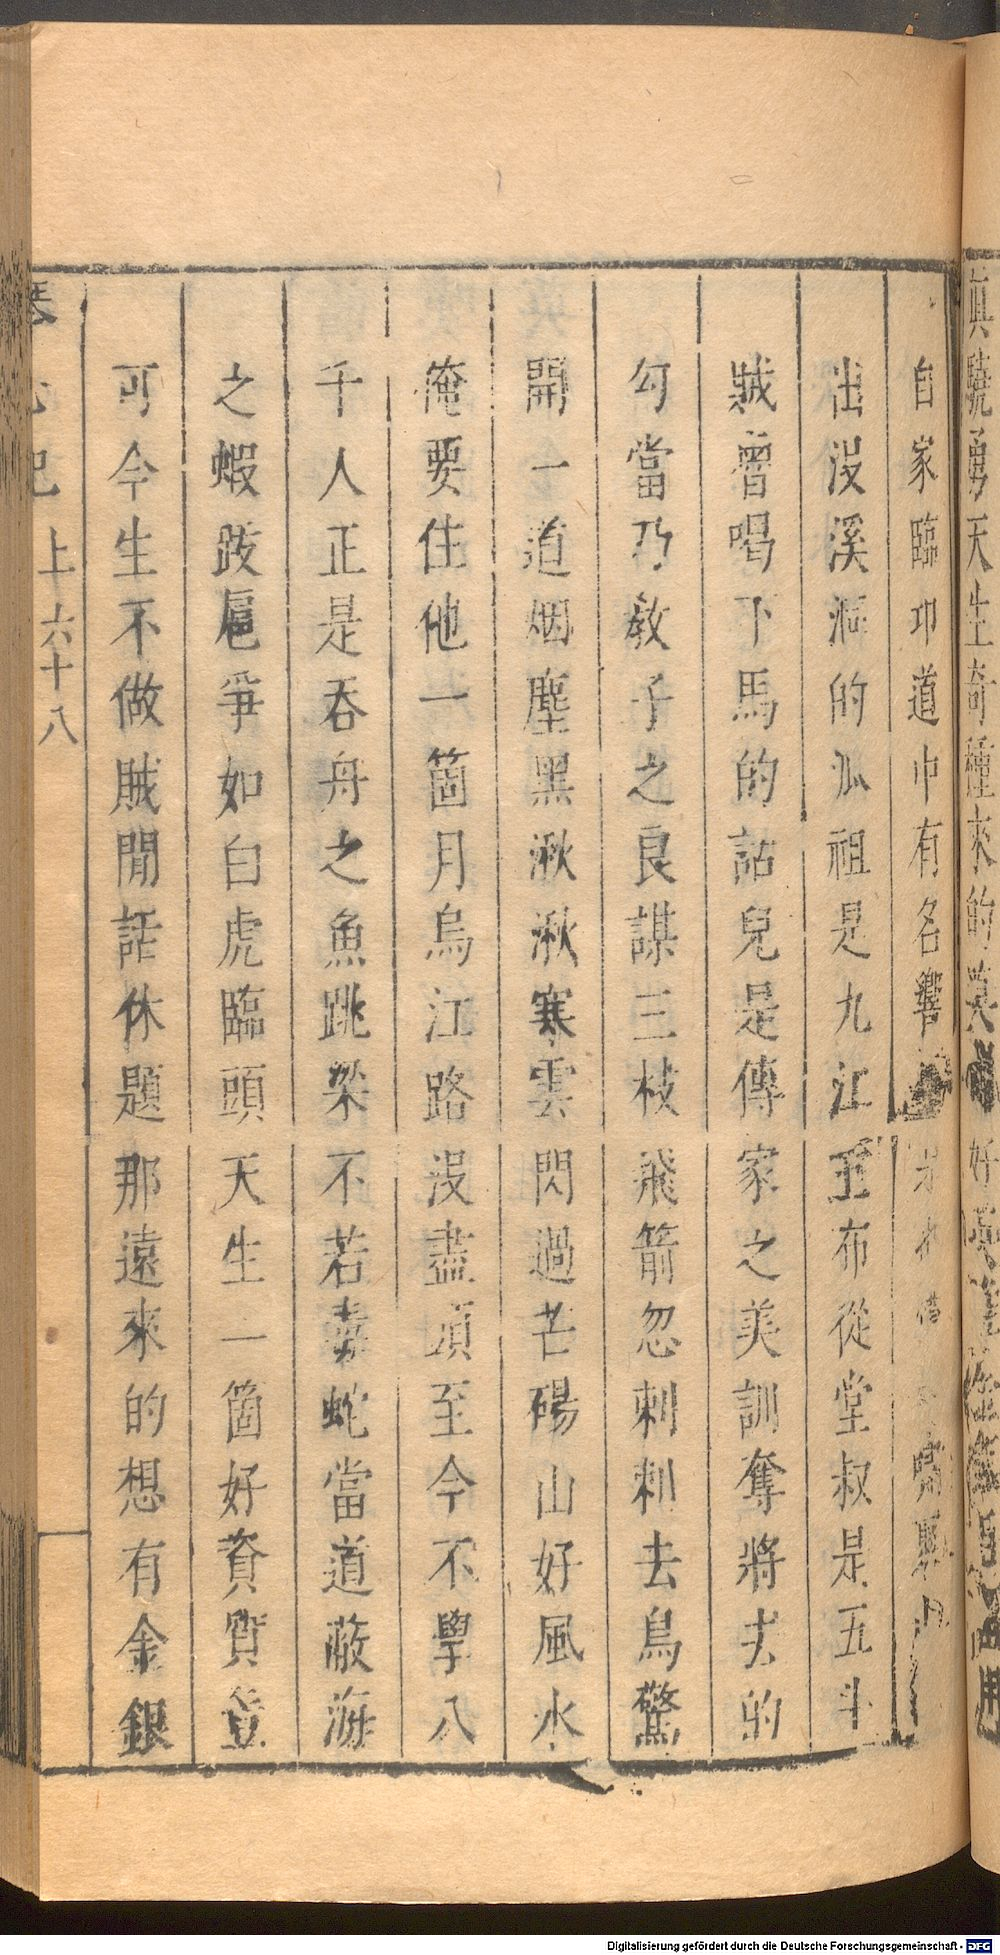 自家臨邛道中有名響
出没溪洞的瓜祖是九江王布從堂叔是五斗
賊曾喝下馬的話兒是傳家之美訓奪將去的
勾當乃教子之良謀三枝飛箭忽刺刺去鳥驚
開一道烟塵黑湫湫寒雲閃過芒碭山好風水
俺要住他一箇月烏江路没盡頭至今不學八
千人正是吞舟之魚跳梁不若毒蛇當道蔽海
之蝦跋扈爭如白虎臨頭天生一箇好資質豈
可今生不做賊閒話休題那遠來的想有金銀
上六十八
Digitalisierung gefördert durch die Deutsche Forschungsgemeinschaft - DFG